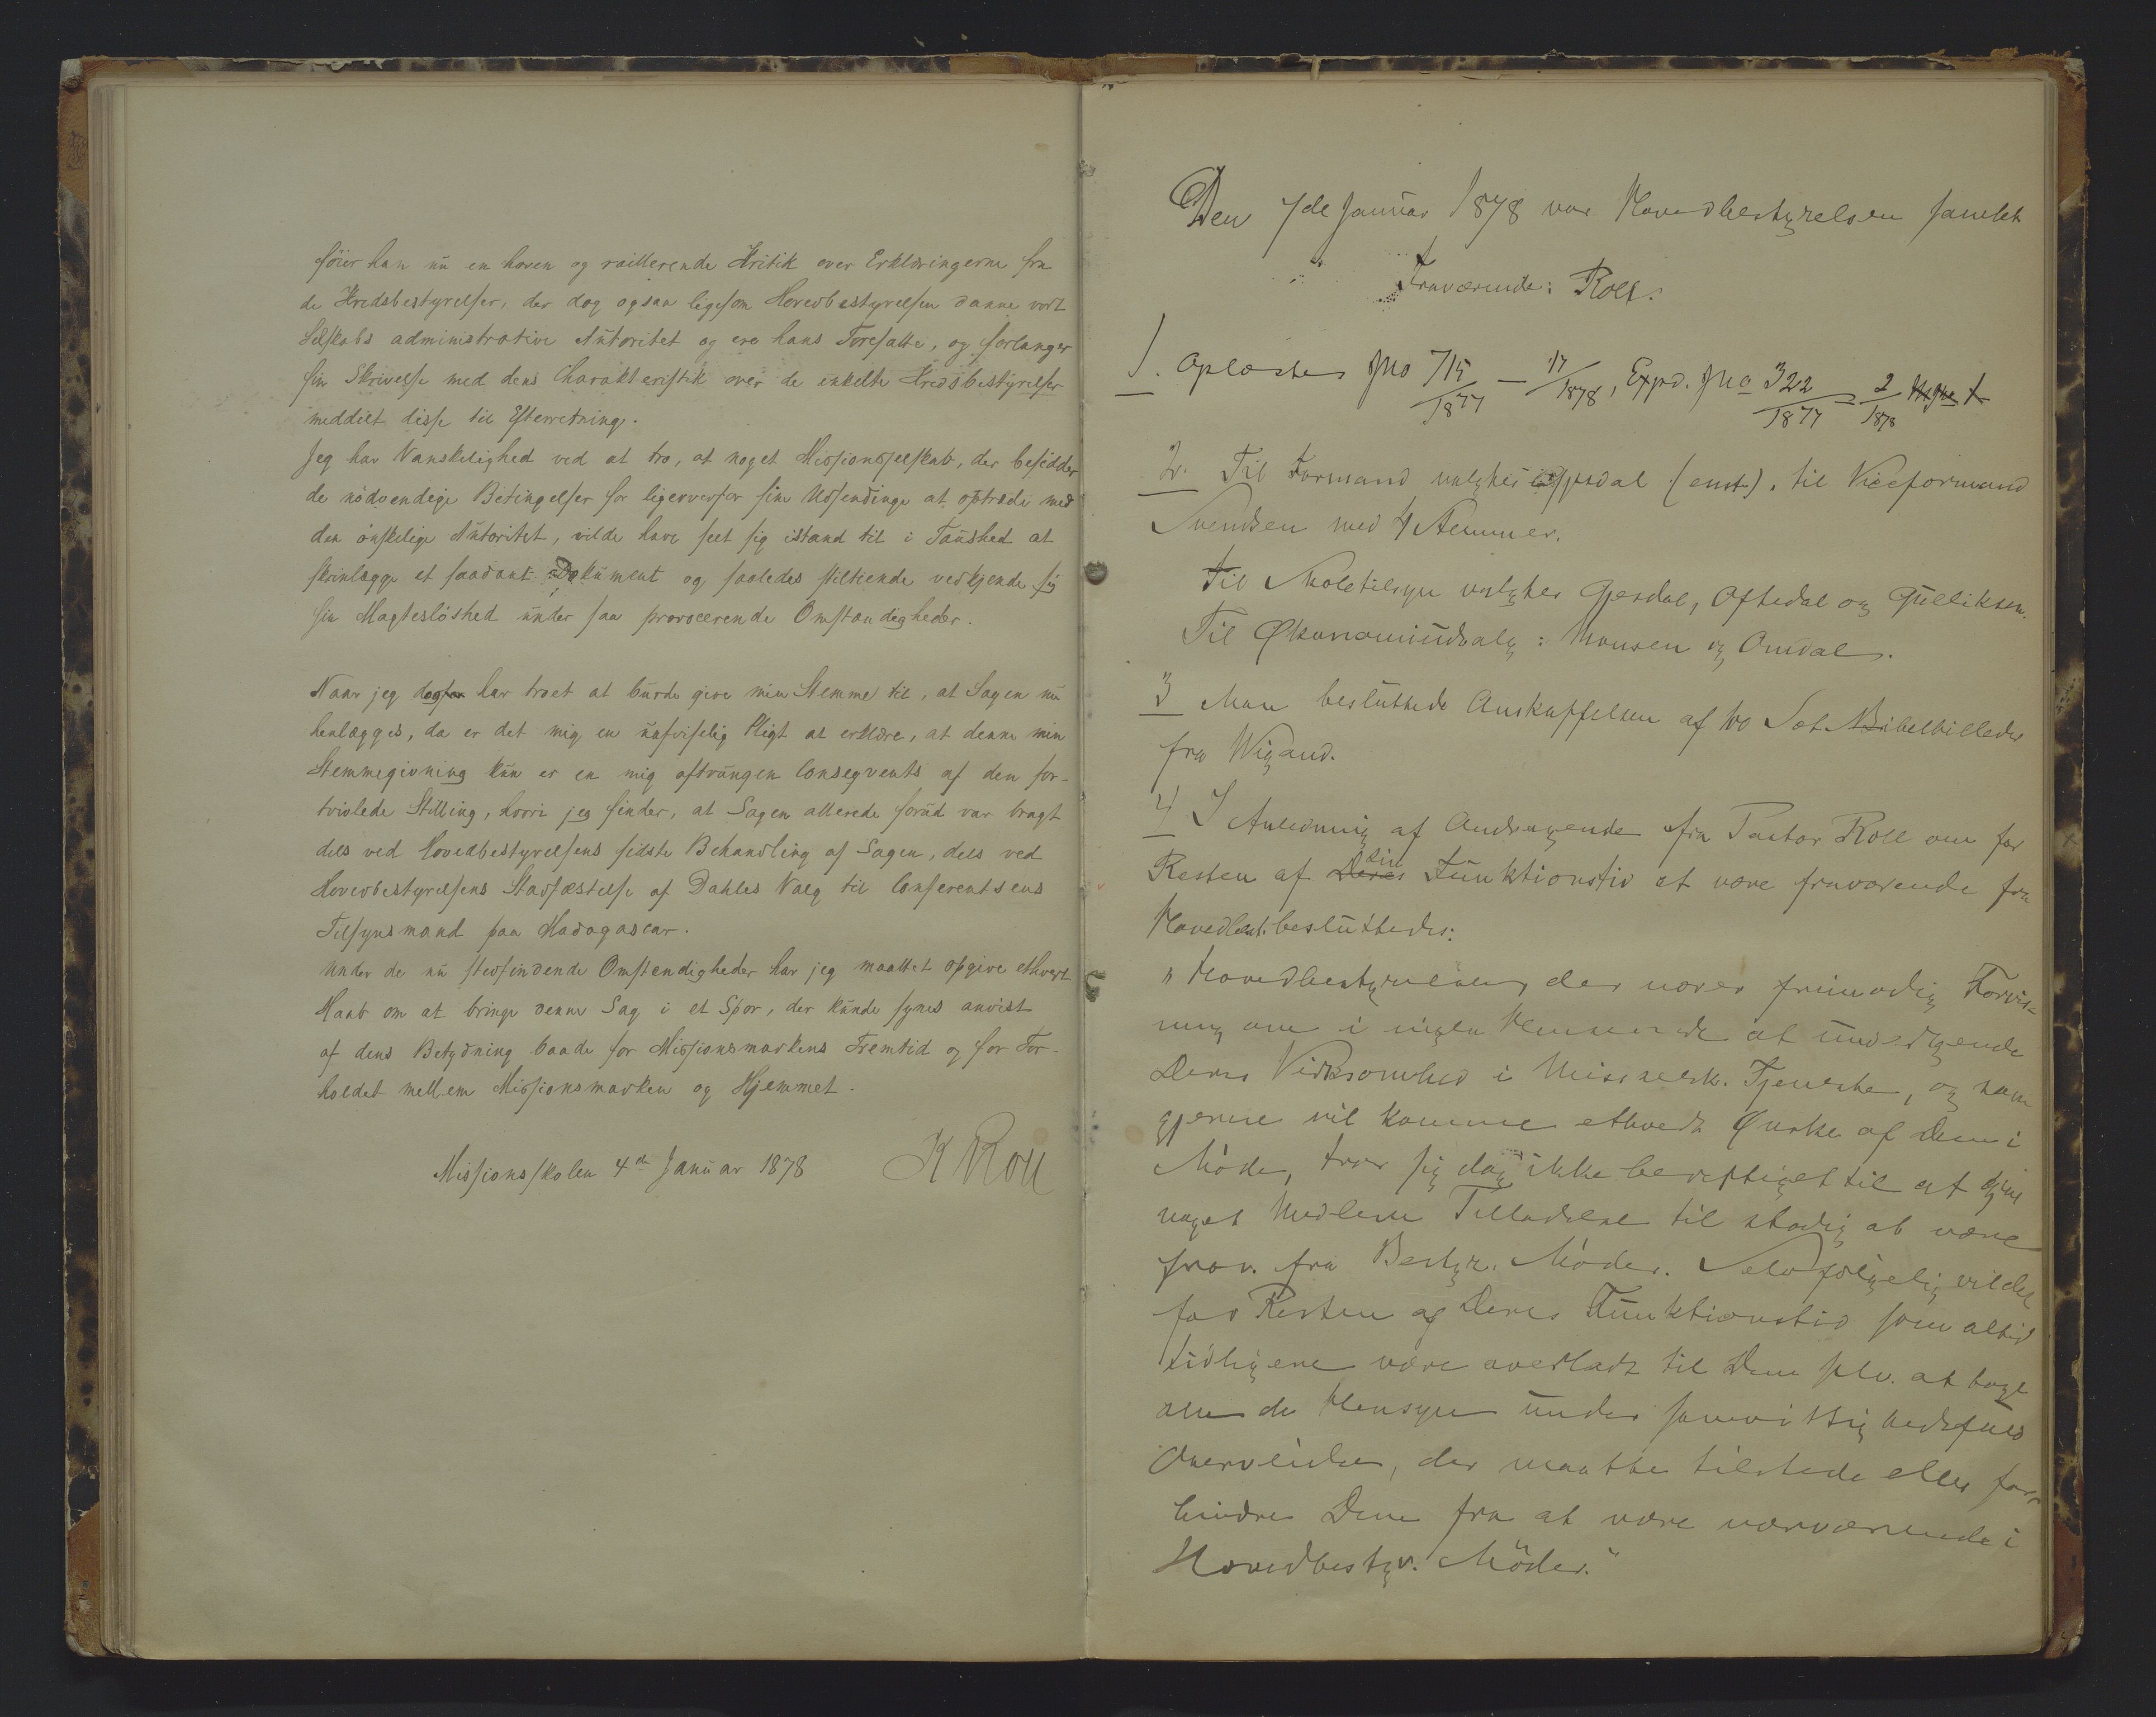 föier han nu en hoven og raillerende Kritik over Erklæringerne fra
de Kredsbestyrelser, der dog ogsaa ligesom Hovedbestyrelsen danne vort
Selskabs administrative Autoritet og ere hans Foresatte, og forlanger
sin Skrivelse med dens Charakteristik over de enkelte Kredsbestyrelser
meddelt disse til Efterretning.
Jeg har Vanskelighed ved at tro, at noget Missionsselskab, der besidder
de nödvendige Betingelser for ligeoverfor sine Udsendinge at optræde med
den önskelige Autoritet, vilde have seet sig istand til i Taushed at
skrinlægge et saadant Dokument og saaledes stiltiende vedkjende sig
sin Magteslöshed under saa provocerende Omstændigheder.
Naar jeg dog har troet at burde give min Stemme til, at Sagen nu
henlægges, da er det mig en uafviselig Pligt at erklære, at denne min
Stemmegivning kun er en mig aftvungen Consequents af den for-
tvivlede Stilling, hvori jeg finder, at Sagen allerede forud var bragt
dels ved Hovedbestyrelsens sidste Behandling af Sagen, dels ved
Hovedbestyrelsens Stadfæstelse af Dahles Valg til Conferentsens
Tilsynsmand paa Madagascar.
Under de nu stedfindende Omstendigheder har jeg maattet opgive ethvert
Haab om at bringe denne Sag i et Spor, der kunde synes anvist
af dens Betydning baade for Missionsmarkens Fremtid og for For-
holdet mellem Missionsmarken og Hjemmet.
Missionsskolen 4de Januar 1878 K Roll
Den 7de Januar 1878 var Hovedbestyrelsen samlet
Fraværende: Roll.
1. Oplæstes Jno 715/1877 – 17/1878, Expd. Jno 322/1877 – 2/1878
2. Til Formand valgtes Gjesdal (enst.), til Viceformand
Svendsen med 4 Stemmer.
Til Skoletilsyn valgtes Gjesdal, Oftedal og Gulliksen.
Til Økonomiudvalg: Monsen og Omdal.
3 Man besluttede Anskaffelsen af 100 Set Bibelbilleder
fra Wigand.
4) I Anledning af Andragende fra Pastor Roll om for
Resten af Deres sin Funktionstid at være fraværende fra
Hovedbest. besluttedes:
"Hovedbestyrelsen, der nærer frimodig Forvis-
ning om i ingen Henseende at undergjende
Deres Virksomhed i Misselsk. Tjeneste, og som
gjerne vil komme ethvert Ønske af Dem i
Möde, tror sig dog ikke berettiget til at give
noget Medlem Tilladelse til stadig at være
frav. fra Bestyr. Möder. Selvfølgelig vil det
for Resten af Deres Funktionstid som altid
tidligere være overladt til Dem selv. at tage
alle de Hensyn under samvittighedsfuld
Overveielse, der maatte tilstede eller for-
hindre Dem fra at være nærværende i
Hovedbestyr. Möder."